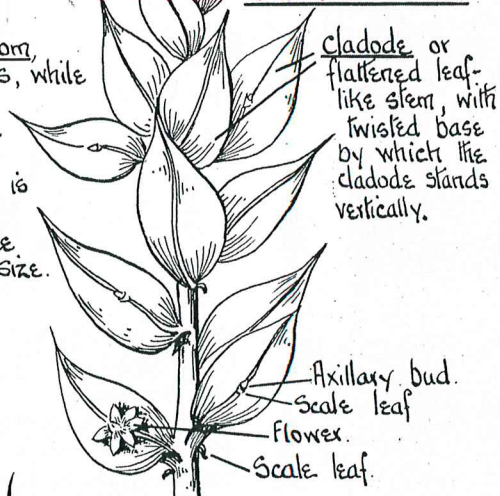 om,
s, while
is
e
size.
cladode or
flattened leaf-
like stem, with
twisted base
by which the
cladode stands
vertically.
Axillary bud.
Scale leaf
Flower.
Scale leaf.